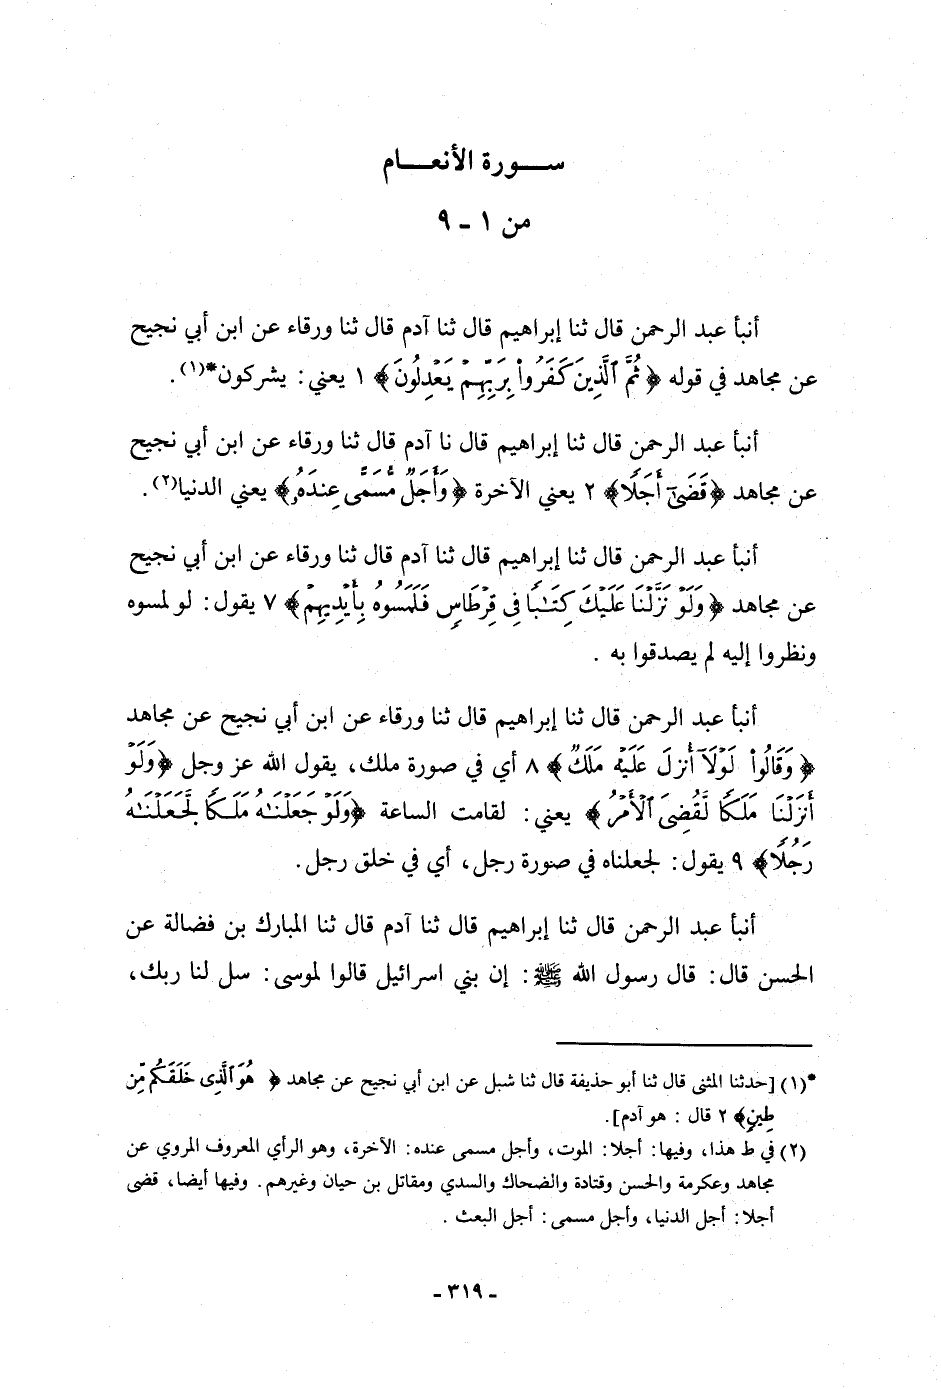 ســـورة الأنعـــام
من ١ - ٩
أنبأ عبد الرحمن قال ثنا إبراهيم قال ثنا آدم قال ثنا ورقاء عن ابن أبي نجيح
عن مجاهد في قوله ﴿ ثُمَّ ٱلَّذِينَ كَفَرُواْ بِرَبِّهِمۡ يَعۡدِلُونَ ﴾ ١ يعني: يشركون*(١).
أنبأ عبد الرحمن قال ثنا إبراهيم قال نا آدم قال ثنا ورقاء عن ابن أبي نجيح
عن مجاهد ﴿قَضَىٰٓ أَجَلٗا﴾ ٢ يعني الآخرة ﴿وَأَجَلٞ مُّسَمًّى عِندَهُۥ﴾ يعني الدنيا(٢).
أنبأ عبد الرحمن قال ثنا إبراهيم قال ثنا آدم قال ثنا ورقاء عن ابن أبي نجيح
عن مجاهد ﴿وَلَوۡ نَزَّلۡنَا عَلَيۡكَ كِتَٰبٗا فِي قِرۡطَاسٖ فَلَمَسُوهُ بِأَيۡدِيهِمۡ﴾ ٧ يقول: لو لمسوه
ونظروا إليه لم يصدقوا به .
أنبأ عبد الرحمن قال ثنا إبراهيم قال ثنا ورقاء عن ابن أبي نجيح عن مجاهد
﴿ وَقَالُواْ لَوۡلَآ أُنزِلَ عَلَيۡهِ مَلَكٞ﴾ ٨ أي في صورة ملك، يقول الله عز وجل ﴿وَلَوۡ
أَنزَلۡنَا مَلَكٗا لَّقُضِيَ ٱلۡأَمۡرُ﴾ يعني: لقامت الساعة ﴿وَلَوۡ جَعَلۡنَٰهُ مَلَكٗا لَّجَعَلۡنَٰهُ
رَجُلٗا﴾ ٩ يقول: لجعلناه في صورة رجل، أي في خلق رجل.
أنبأ عبد الرحمن قال ثنا إبراهيم قال ثنا آدم قال ثنا المبارك بن فضالة عن
الحسن قال: قال رسول الله ﷺ: إن بني اسرائيل قالوا لموسى: سل لنا ربك،
*(١) [حدثنا المثنى قال ثنا أبو حذيفة قال ثنا شبل عن ابن أبي نجيح عن مجاهد ﴿ هُوَ ٱلَّذِي خَلَقَكُم مِّن
طِينٖ﴾ ٢ قال : هو آدم].
(٢) في ط هذا، وفيها: أجلا: الموت، وأجل مسمى عنده: الآخرة، وهو الرأي المعروف المروي عن
مجاهد وعكرمة والحسن وقتادة والضحاك والسدي ومقاتل بن حيان وغيرهم. وفيها أيضا، قضى
أجلا: أجل الدنيا، وأجل مسمى: أجل البعث .
- ٣١٩ -